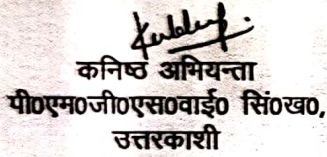 कनिष्ठ अभियन्ता
पी0एम0जी0एस0वाई0 सिं0ख0,
उत्तरकाशी